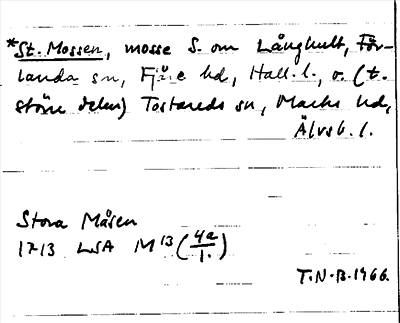 *St. Mossen, mosse S. om Långhult, För-
landa sn, Fjäre hd, Hall. l., o. (t.
större delen) Tostareds sn, Marks hd,
Älvsb. l.
Stora Måsen
1713 LSA M 13 (4a/1.)
T.N-B. 1966.